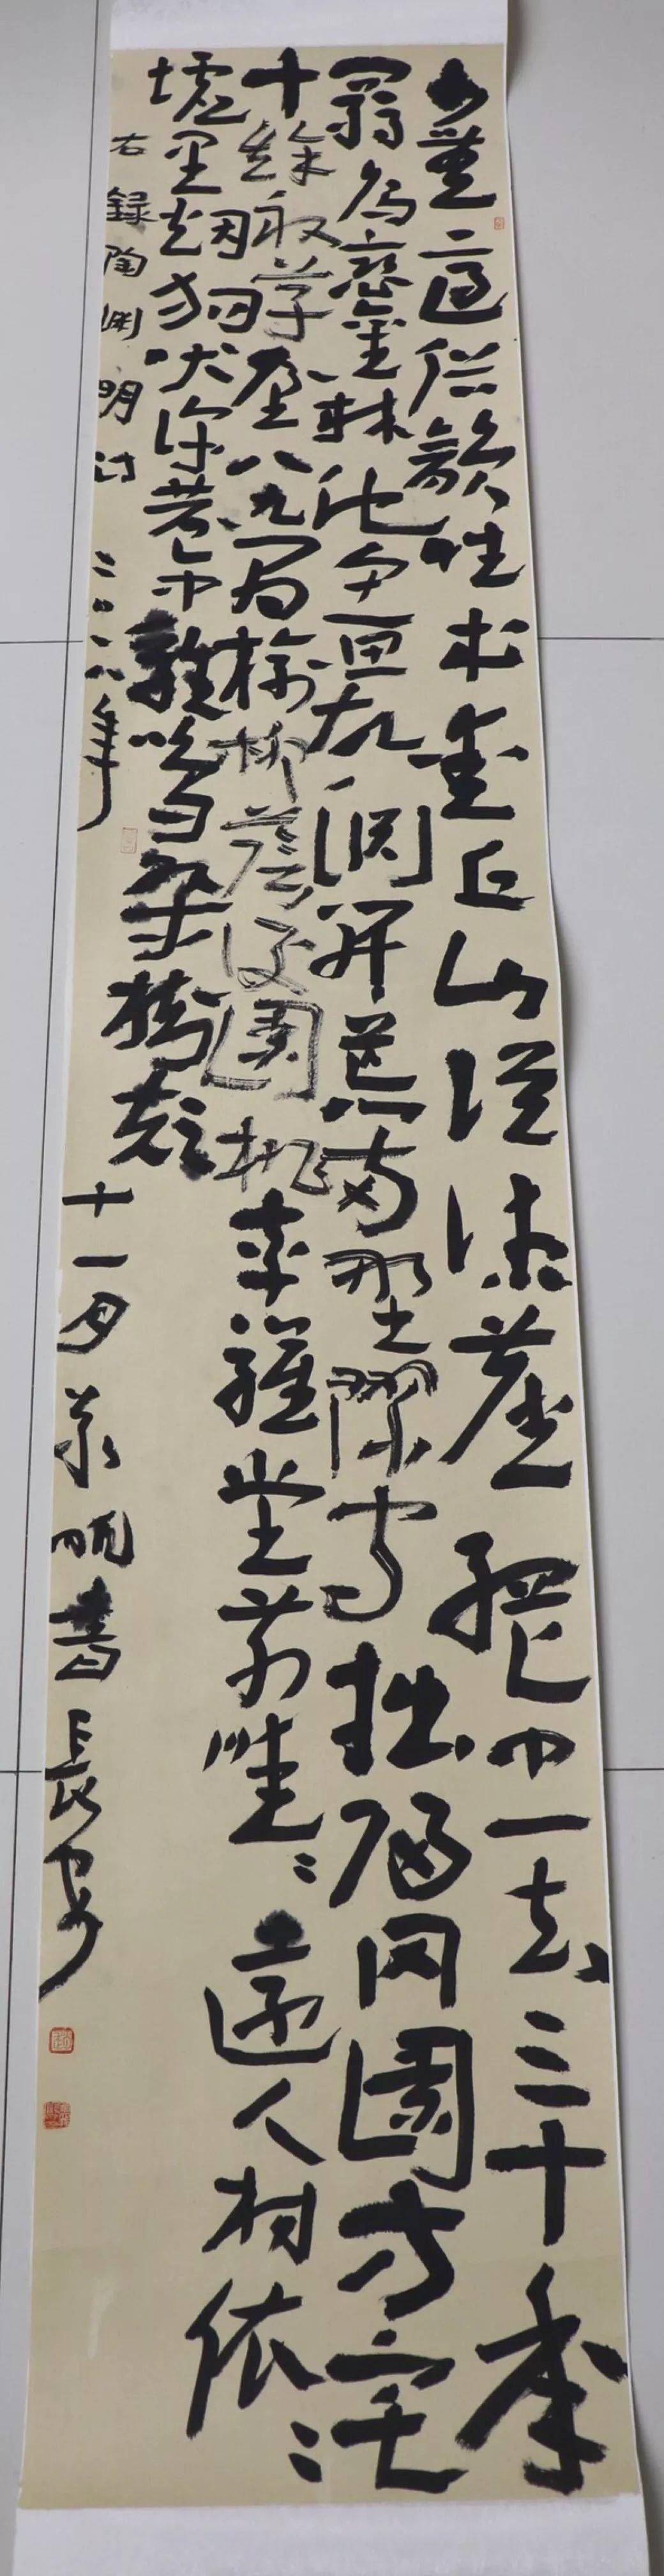 少無適俗韻性本愛丘山誤落塵網中一去三十年
羈鳥戀舊林池魚思故淵開荒南野際守拙歸田園方宅
十餘畝草屋八九間榆柳蔭後園桃李羅堂前曖〻遠人村依〻
墟里烟狗吠深巷中雞鳴桑樹顛
右錄陶淵明詩二〇一八年十一月書長安